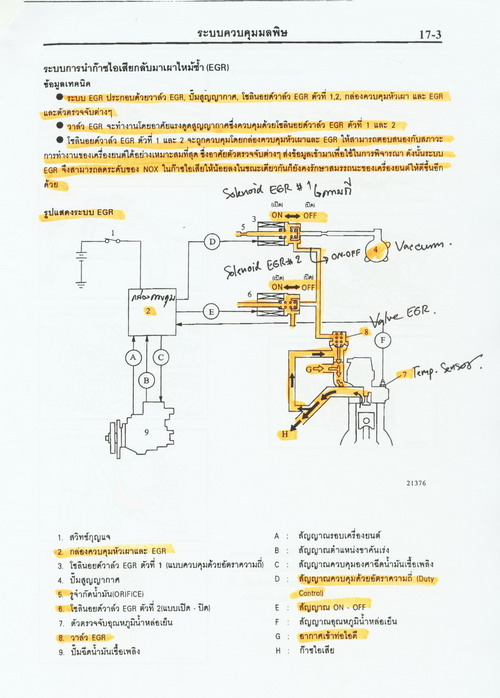 ระบบควบคุมมลพิษ 17-3
ระบบการนำก๊าซไอเสียกลับมาเผาไหม้ซ้ำ (EGR)
ข้อมูลเทคนิค
● ระบบ EGR ประกอบด้วยวาล์ว EGR, ปั๊มสูญญากาศ, โซลินอยด์วาล์ว EGR ตัวที่ 1,2, กล่องควบคุมหัวเผา และ EGR
และตัวตรวจจับต่างๆ
● วาล์ว EGR จะทำงานโดยอาศัยแรงดูดสูญญากาศซึ่งควบคุมด้วยโซลินอยด์วาล์ว EGR ตัวที่ 1 และ 2
● โซลินอยด์วาล์ว EGR ตัวที่ 1 และ 2 จะถูกควบคุมโดยกล่องควบคุมหัวเผาและ EGR ให้สามารถตอบสนองกับสภาวะ
การทำงานของเครื่องยนต์ได้อย่างเหมาะสมที่สุด ซึ่งอาศัยตัวตรวจจับต่างๆ ส่งข้อมูลเข้ามาเพื่อใช้ในการพิจารณา ดังนั้นระบบ
EGR จึงสามารถลดระดับของ NOX ในก๊าซไอเสียให้น้อยลงในขณะเดียวกันก็ยังคงรักษาสมรรถนะของเครื่องยนต์ให้ดีขึ้นอีก
ด้วย
Solenoid EGR #1 ความถี่
รูปแสดงระบบ EGR
(เปิด) (ปิด)
ON OFF
3
1
5
D
4 Vaccum.
ON-OFF
Solenoid EGR#2
(เปิด) (ปิด)
ON OFF
6
กล่องควบคุม
2
E
Valve EGR.
8
F
A
B
C
G
7 Temp. Sensor.
9
H
21376
1. สวิทช์กุญแจ
2. กล่องควบคุมหัวเผาและ EGR
3. โซลินอยด์วาล์ว EGR ตัวที่ 1 (แบบควบคุมด้วยอัตราความถี่)
4. ปั๊มสูญญากาศ
5. รูจำกัดน้ำมัน(ORIFICE)
6. โซลินอยด์วาล์ว EGR ตัวที่ 2(แบบเปิด - ปิด)
7. ตัวตรวจจับอุณหภูมิน้ำหล่อเย็น
8. วาล์ว EGR
9. ปั๊มฉีดน้ำมันเชื้อเพลิง
A : สัญญาณรอบเครื่องยนต์
B : สัญญาณตำแหน่งขาคันเร่ง
C : สัญญาณควบคุมองศาฉีดน้ำมันเชื้อเพลิง
D : สัญญาณควบคุมด้วยอัตราความถี่ (Duty
Control)
E : สัญญาณ ON - OFF
F : สัญญาณอุณหภูมิน้ำหล่อเย็น
G : อากาศเข้าท่อไอดี
H : ก๊าซไอเสีย